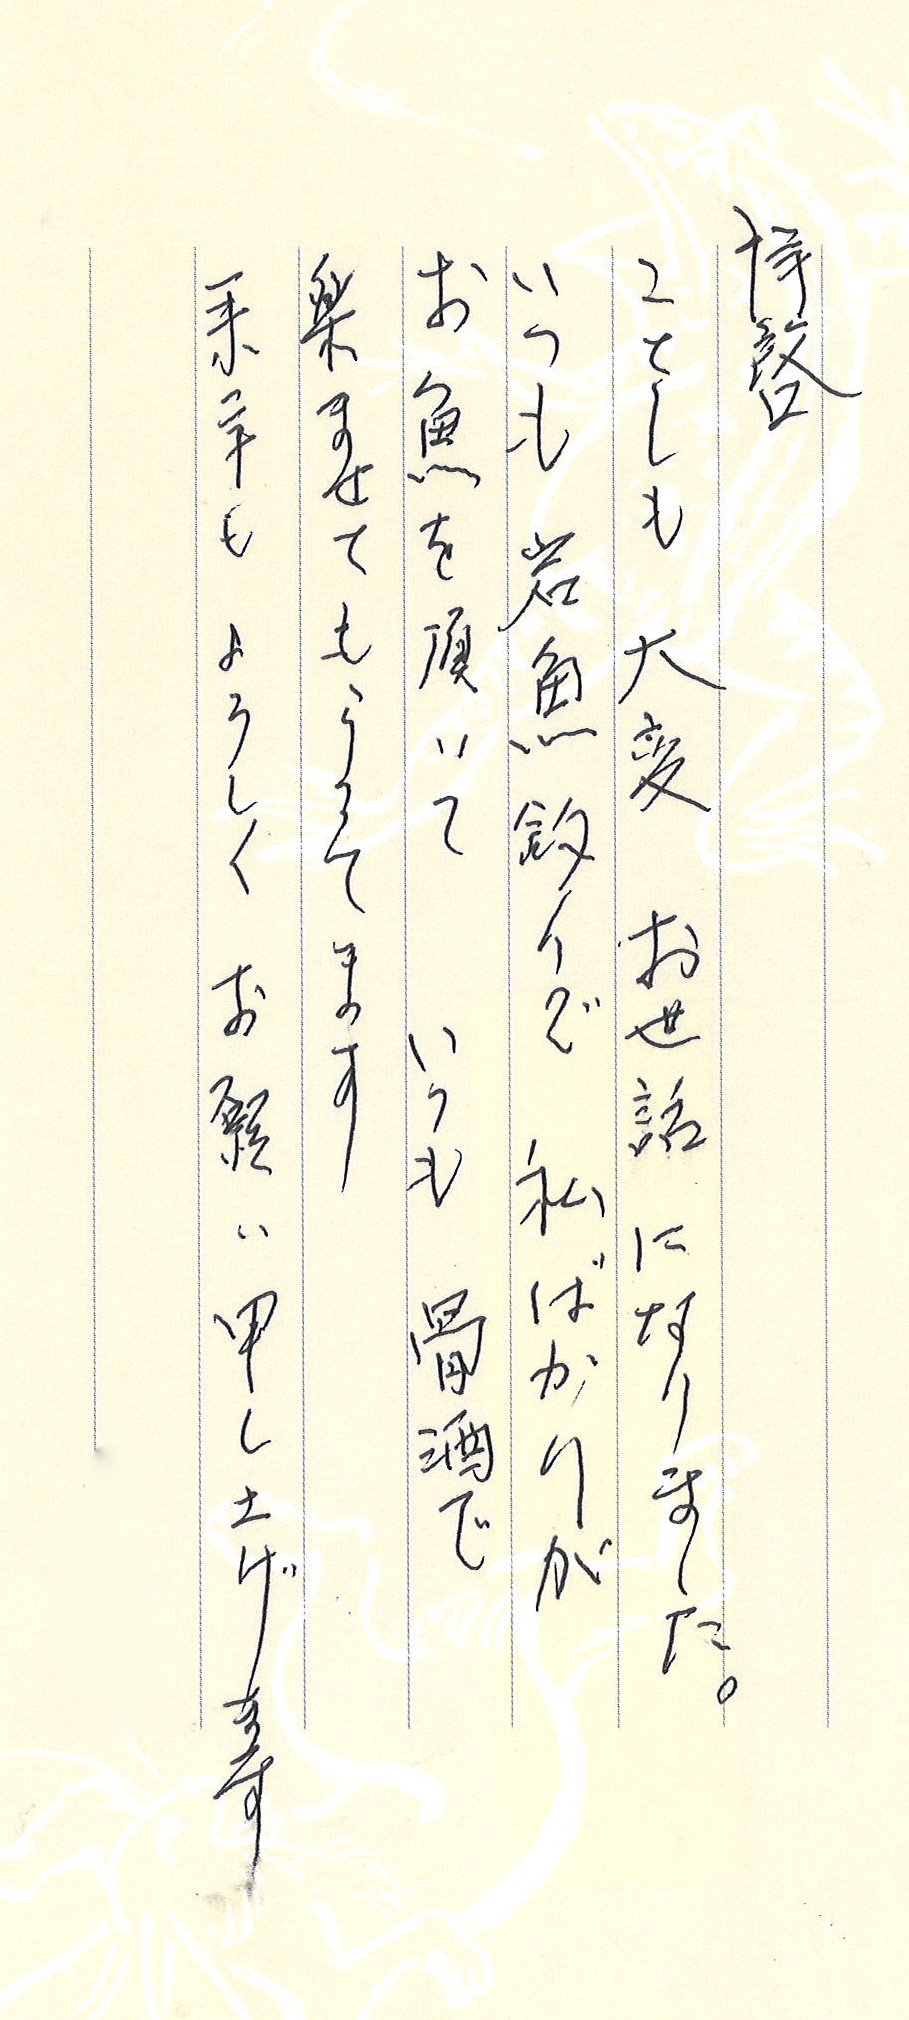 拝啓
ことしも 大変 お世話になりました。
いつも 岩魚釣りで 私ばかりが
お魚を頂いて いつも 骨酒で
楽ませてもらってます
来年も よろしく お願い申し上げます